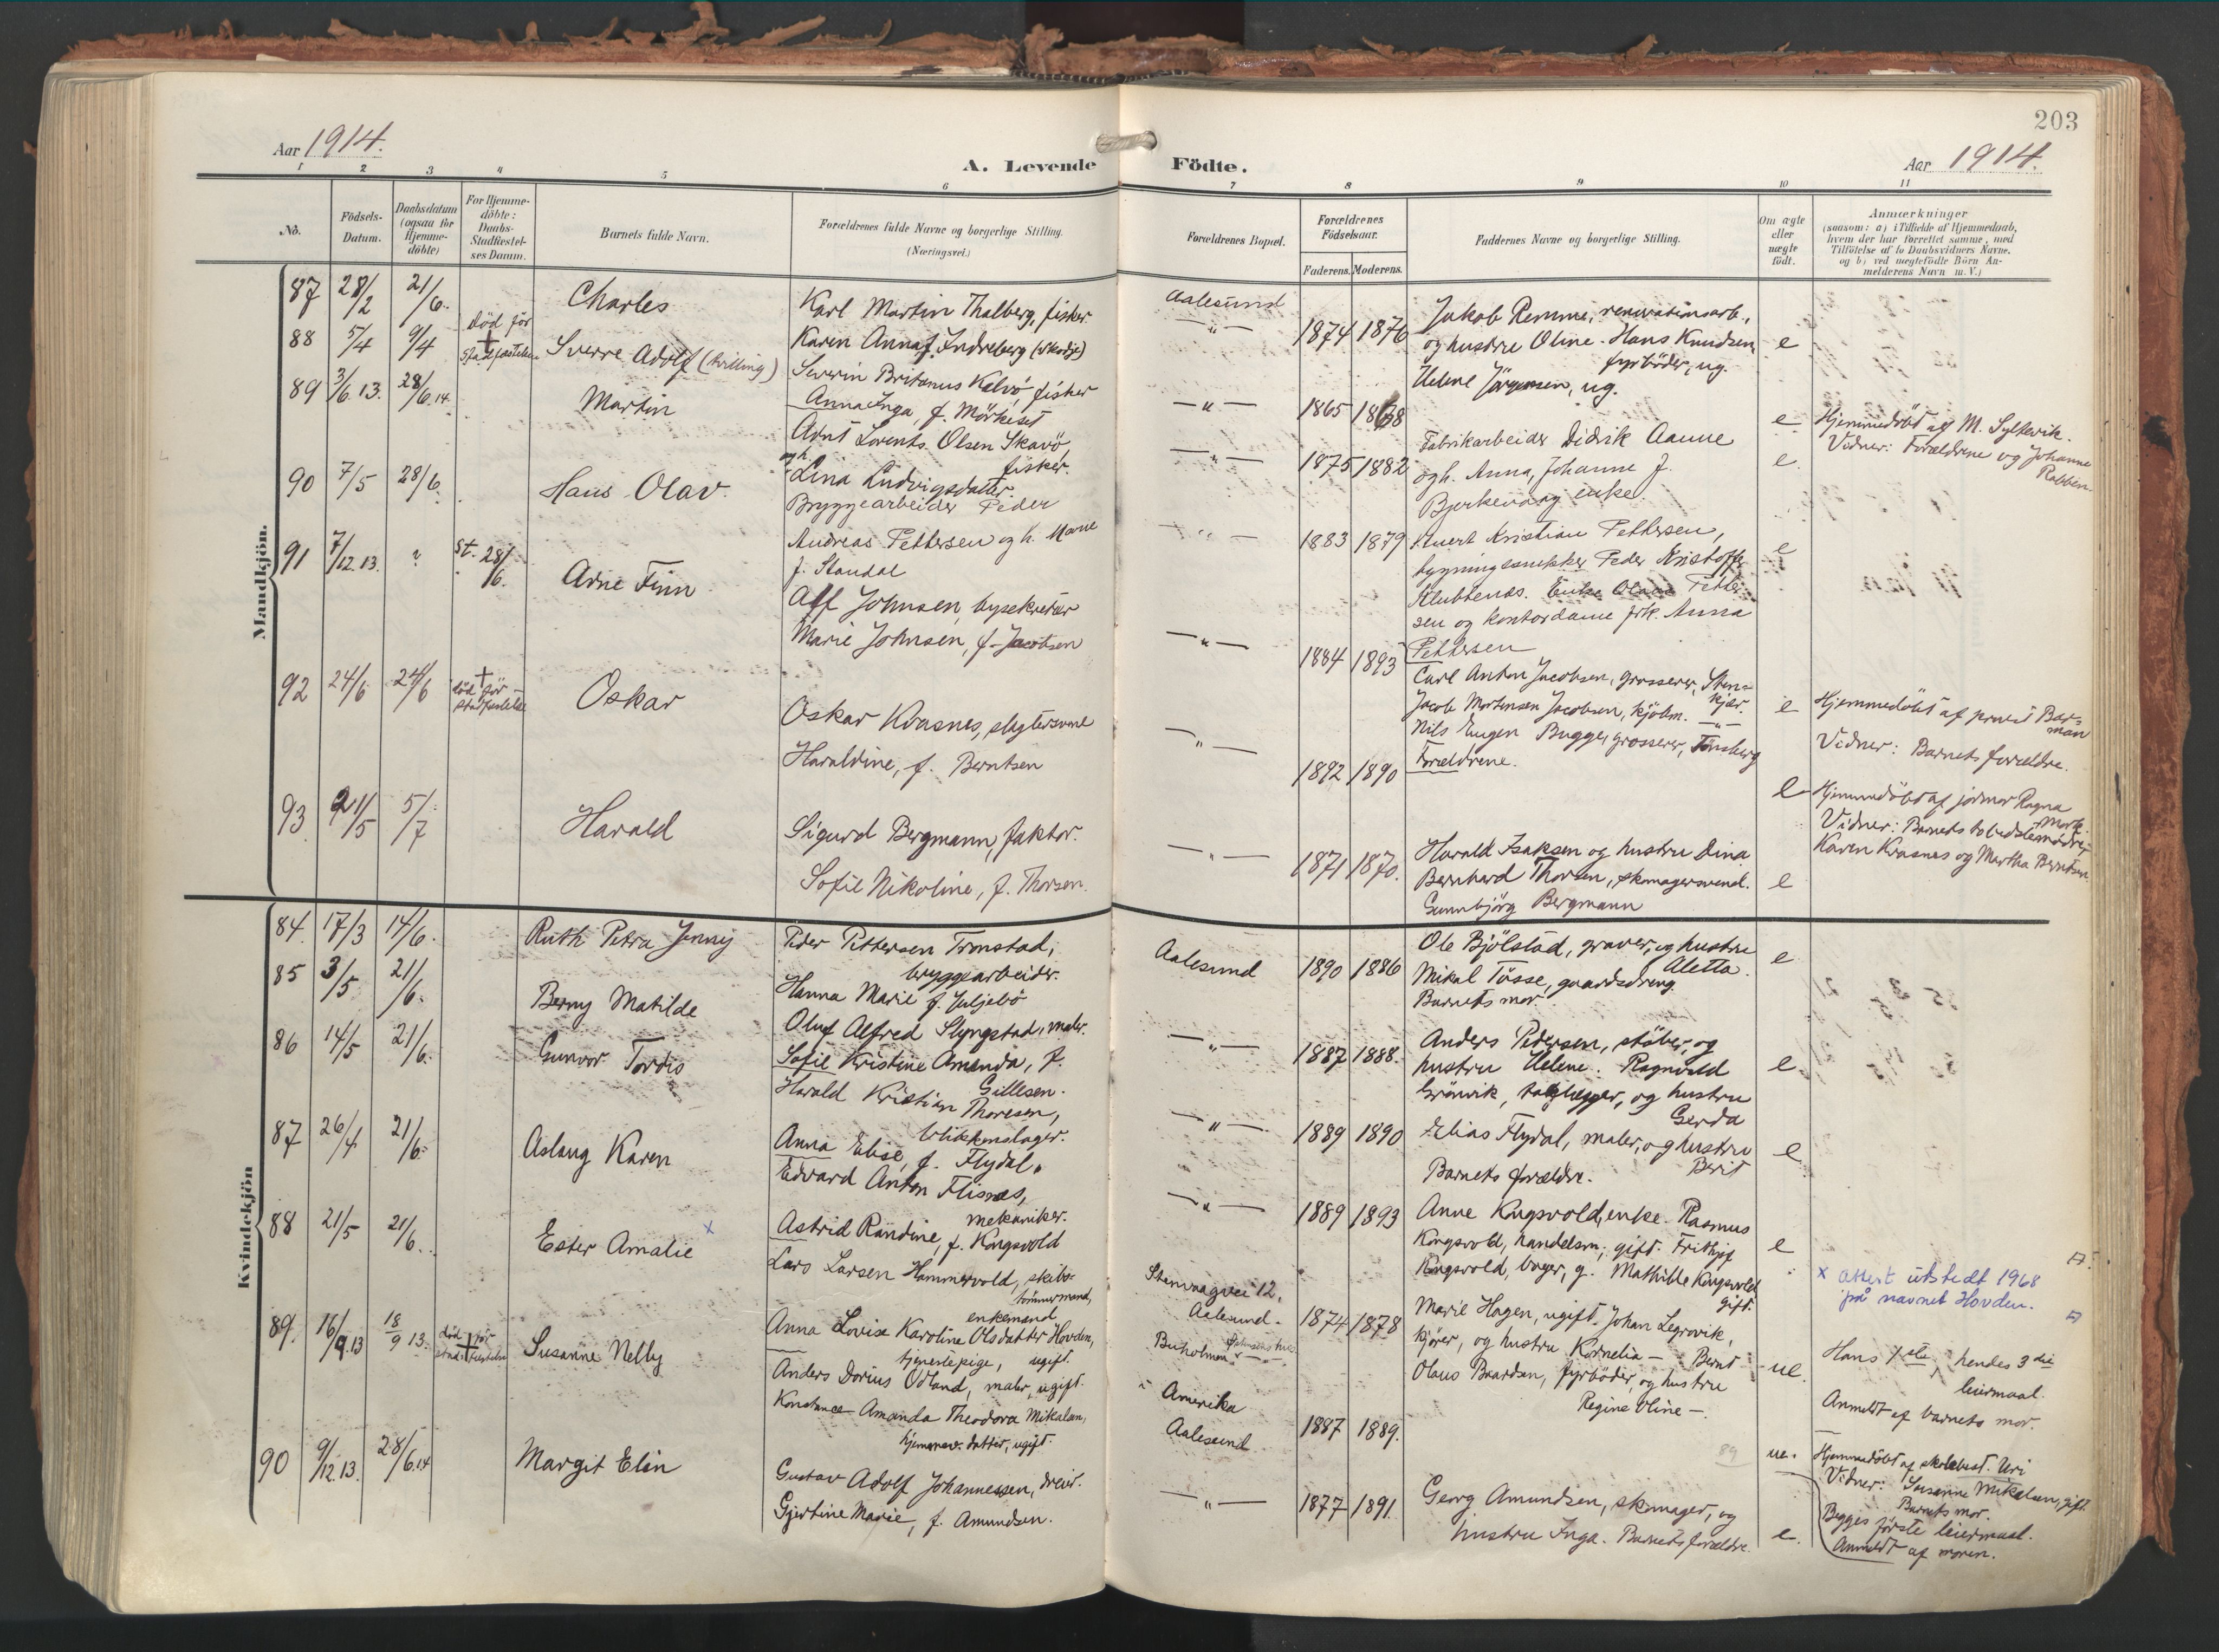 203
Aar 1914.
A. Levende
Födte.
Aar 1914.
1 2 3 4 5 6
7 8 9 10 11
No.
Födsels-
Datum.
Daabsdatum
(ogsaa for
Hjemme-
döbte)
For Hjemme-
döbte:
Daabs-
Stadfæstel-
ses Datum.
Barnets fulde Navn.
Forældrenes fulde Navne og borgerlige Stilling.
(Næringsvei.)
Forældrenes Bopæl.
Forældrenes
Födselsaar.
Faderens. Moderens.
Faddernes Navne og borgerlige Stilling.
Om ægte
eller
uægte
födt.
Anmærkninger
(saasom: a) i Tilfælde af Hjemmedaab,
hvem der har forrettet samme, med
Tilföielse af to Daabsvidners Navne,
og b) ved uægtefödte Börn An-
melderens Navn m. V.)
Mandkjön.
87 28/2 21/6.
Charles
Karl Martin Thalberg, fisker.
Karen Anna f. Indreberg (Skodje)
Aalesund
1874 1876
Jakob Remme, renovationsarb.,
og hustru Oline. Hans Knudsen,
fyrböder, ug.
Helene Jörgensen, ug.
e
88 5/4 9/4
död för
†
stadfæstelsen
Sverre Adolf (tvilling)
Severin Britanus Kalvö, fisker
Anna Inga, f. Mörkeset
-"-
1865 1868
e
Hjemmedöbt af M. Syltevik.
Vidner: Forældrene og Johanne
Rabben.
89 3/6.13. 28/6.14.
Martin
Arnt Lorents Olsen Skavö,
fisker.
og h.
Lina Ludvigsdatter.
-"-
1875 1882
Fabrikarbeider Didrik Aanne
og h. Anna, Johanne J.
Bjerkevaag enke.
e.
90 7/5 28/6.
Hans Olav.
Bryggearbeider Peder
Andreas Pettersen og h. Marie
f. Standal
-"-
1883 1879
Knert Kristian Pettersen,
bygningssnekker Peder Kristoffer
Klubbenes. Enke Olava Petter-
sen og kontordame frk. Anna
Pettersen
e
91 7/12.13. ? St. 28/6.
Arne Finn
Alf Johnsen, bysekretær
Marie Johnsen, f. Jacobsen
-"-
1884 1893
Carl Anton Jacobsen, grosserer, Sten-
kjær.
Jacob Mortensen Jacobsen, kjöbm. -"-
Nils Eugen Bugge, grosserer, Tönsberg
Forældrene.
e
Hjemmedöbt af provst Bar-
man
Vidner: Barnets forældre.
92 24/6 24/6
†
död för
stadfæstelse
Oskar
Oskar Krasnes, slagtersvend
Haraldine, f. Berntsen
-"-
1892 1890
e
Hjemmedöbt af jormor Ragna
Mork.
Vidner: Barnets bedstemödre,
Karen Krasnes og Martha Berntsen
93 21/5 5/7
Harald
Sigurd Bergmann, faktor.
Sofie Nikoline, f. Thorsen.
-"-
1871 1870.
Harald Isaksen og hustru Dina
Bernhard Thorsen, skomagersvend.
Gunnbjörg Bergmann
e
Kvindekjön
84. 17/3 14/6.
Ruth Petra Jenny
Peder Pettersen Tronstad,
bryggearbeider.
Hanna Marie f. Juljebö
Aalesund
1890 1886
Ole Bjölstad, graver, og hustru
Aletta.
Mikal Tösse, gaardsdreng.
Barnets mor.
e
85 3/5 21/6.
Berny Matilde
Oluf Alfred Slyngstad, maler.
Sofie Kristine Amanda, f.
Gillesen.
-"-
1887 1888.
Anders Pedersen, stöber, og
hustru Helene. Ragnvald
Grönvik, taglægger, og hustru
Gerda
e.
86 14/5 21/6.
Gunvor Tordis
Harald Kristian Thoresen,
blikkenslager.
Anna Elise, f. Flydal.
-"-
1889 1890
Elias Flydal, maler, og hustru
Berit
Barnets forældre.
e
87 26/4 21/6.
Aslaug Karen
Edvard Anton Flisnes,
mekaniker.
Astrid Randine, f. Kongsvold
-"-
1889 1893
Anne Kongsvold, enke. Rasmus
Kongsvold, handelsm., gift. Frithjof
Kongsvold, bager, g. Mathilde Kongsvold
gift.
e
88 21/5 21/6.
Ester Amalie x
Lars Larsen Hammervold, skibs-
tömmermand,
enkemand
Anna Lovise Karoline Olsdatter Hovden,
tjenestepige, ugift.
Stenvaagvei 12,
Aalesund.
Buholmen
1874 1878
Marie Hagen, ugift. Johan Legrovik,
kjörer, og hustru Kornelia — Bernt
Olaus Baardsen, fyrböder, og hustru
Regine Oline —.
ue.
x attest utstedt 1968
på navnet Hovden.
Hans 1ste, hendes 3die
leiermaal.
Anmeldt af barnets mor.
89. 16/9.13 18/9 13.
död för
†
Susanne Nelly
Anders Dorius Ödland, maler, ugift.
Konstance Amanda Theodora Mikalsen,
hjemmev. datter, ugift.
Amerika
Aalesund
1887 1889.
89
ue.
Hjemmedöbt af skolebest. Uri
Vidner: Susanne Mikalsen, gift.
Barnets mor.
Begges förste leiermaal.
Anmeldt af moren.
90 9/12.13. 28/6.14
Margit Elin
Gustav Adolf Johannessen, dreier.
Gjertine Marie, f. Amundsen.
-"-
1877 1891.
Georg Amundsen, skomager, og
hustru Inga. Barnets forældre.
e.